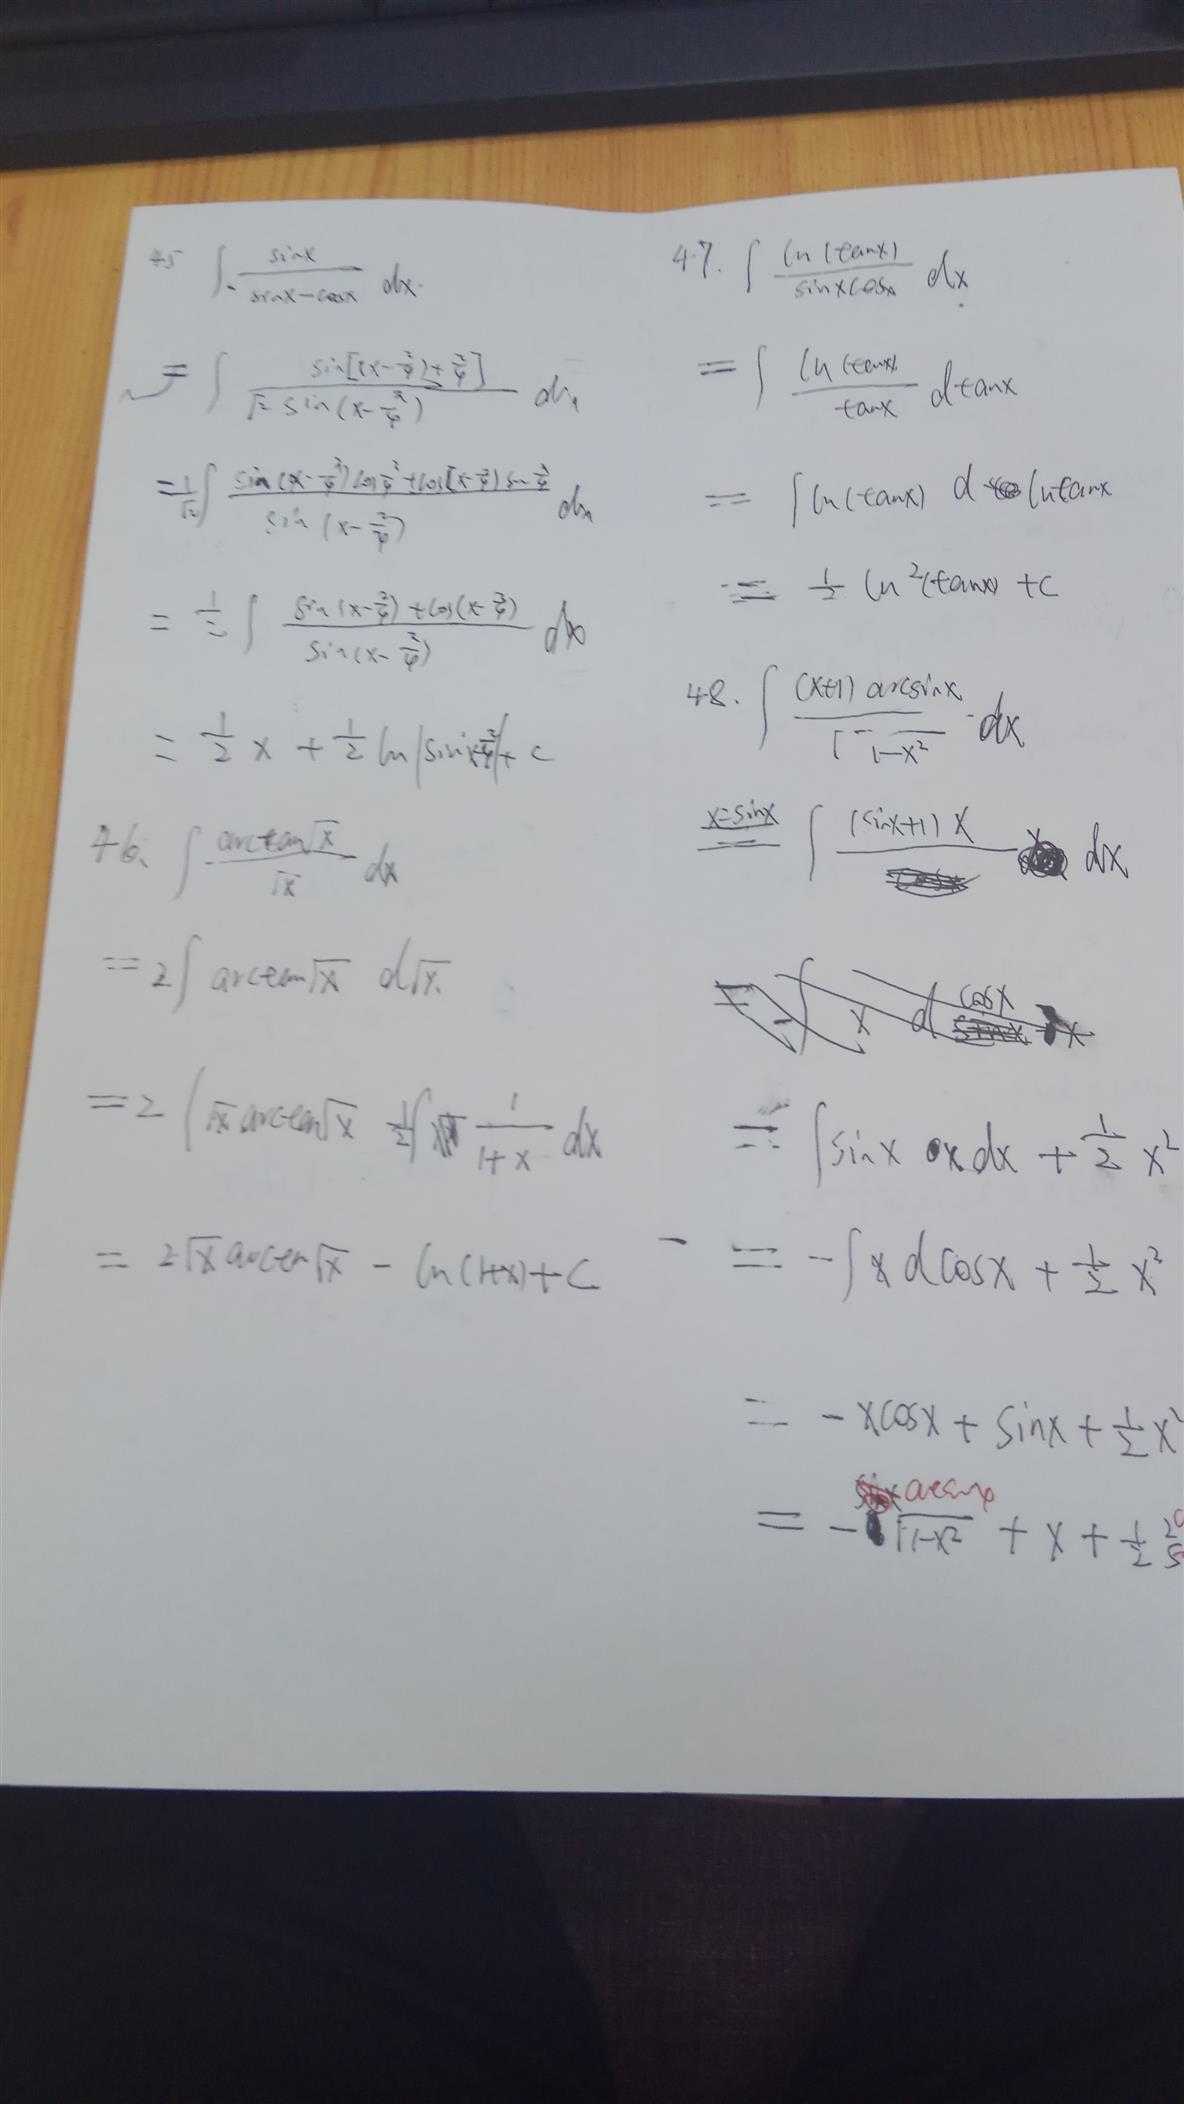 45 ∫ sinx / (sinx-cosx) dx.
= ∫ sin[(x-π/4)+π/4] / (√2 sin(x-π/4)) dx
= 1/√2 ∫ (sin(x-π/4)cosπ/4+cos(x-π/4)sinπ/4) / sin(x-π/4) dx
= 1/2 ∫ (sin(x-π/4)+cos(x-π/4)) / sin(x-π/4) dx
= 1/2 x + 1/2 ln|sin(x-π/4)|+c
46. ∫ arctan√x / √x dx
= 2∫ arctan√x d√x.
= 2 (√x arctan√x 1/2∫ 1/(1+x) dx
= 2√x arctan√x - ln(1+x)+C
47. ∫ ln(tanx) / (sinxcosx) dx
= ∫ ln(tanx) / tanx dtanx
= ∫ ln(tanx) d lntanx
= 1/2 ln²(tanx) +c
48. ∫ (x+1) arcsinx / √(1-x²) dx
x=sinx ∫ (sinx+1) x dx
= ∫ x d cosx x
= ∫sinx x dx + 1/2 x²
= -∫x dcosx + 1/2 x²
= -xcosx + sinx + 1/2 x²
arcsinx
= -√(1-x²) + x + 1/2